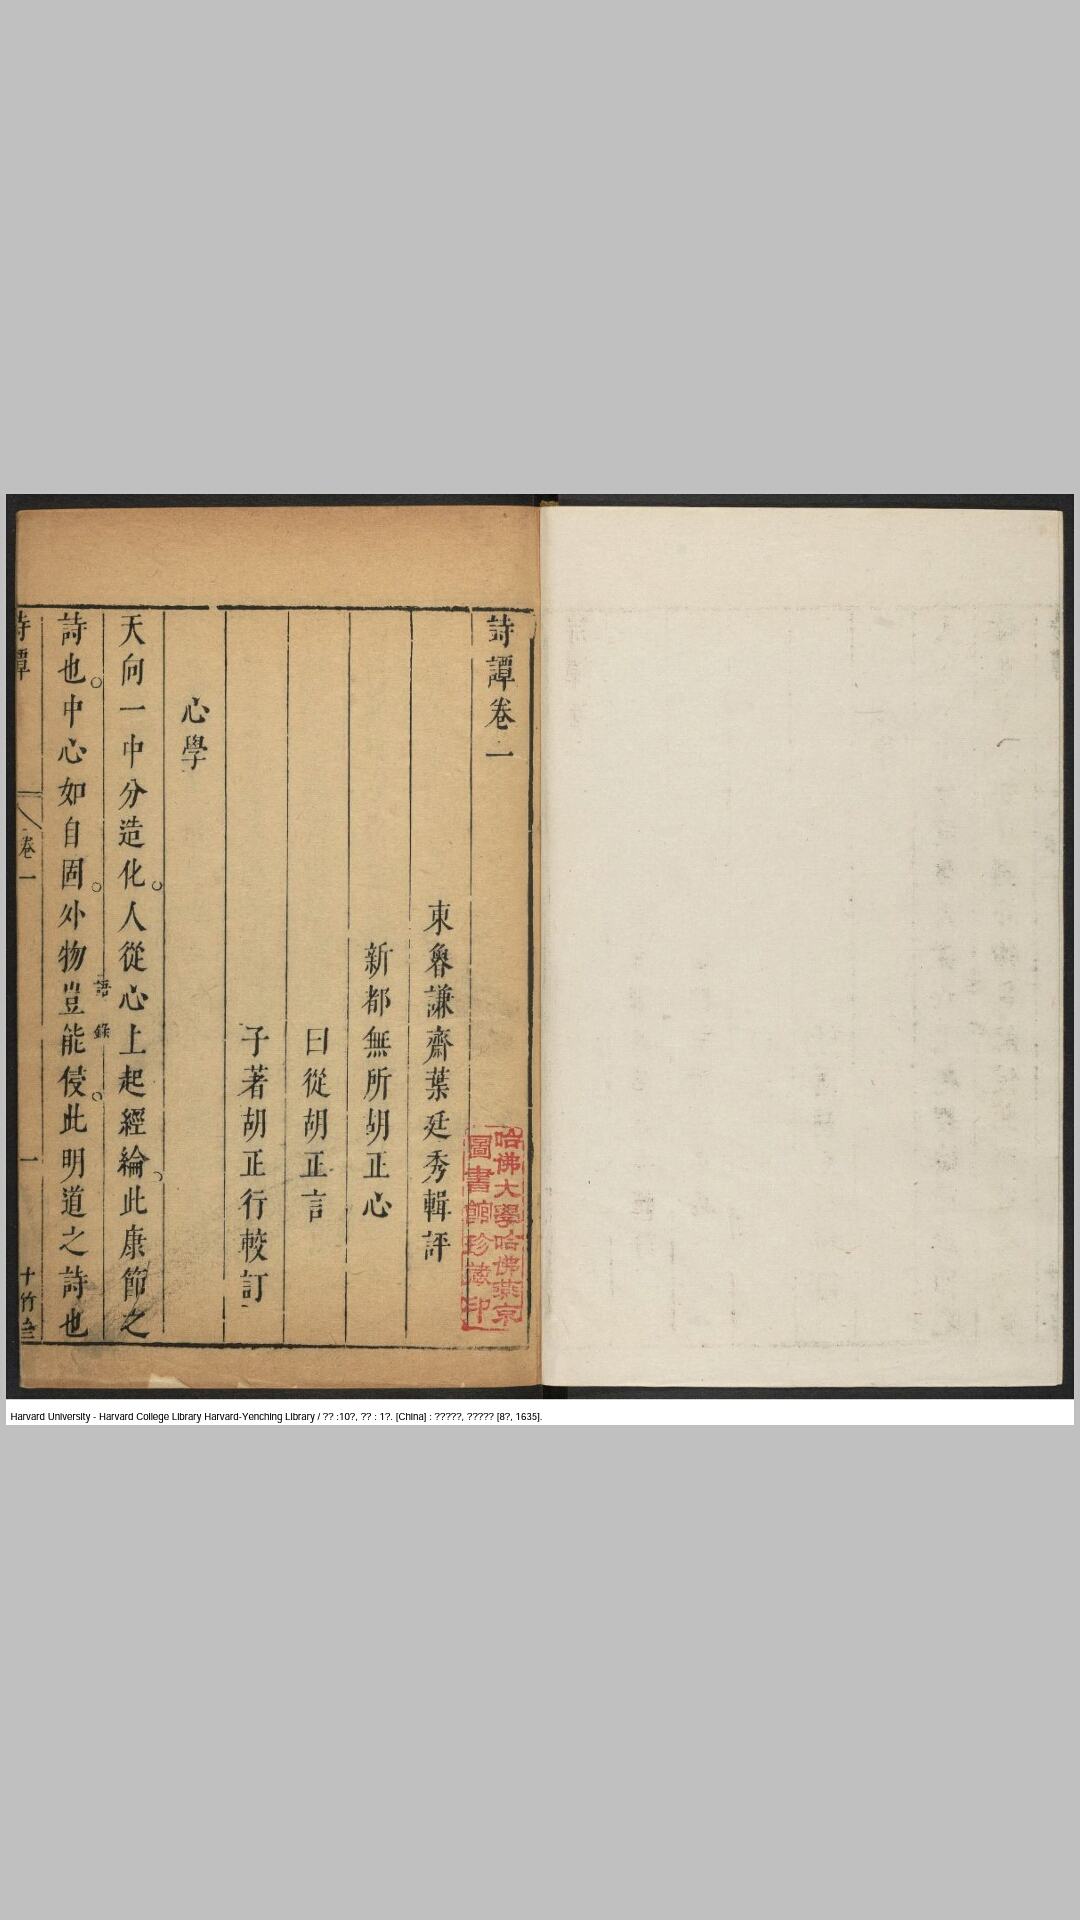 詩譚卷一
東魯謙齋葉廷秀輯評
新都無所胡正心
曰從胡正言
子著胡正行較訂
心學
天向一中分造化人從心上起經綸此康節之
詩也中心如自固外物豈能侵此明道之詩也
語錄
詩譚
卷一
一
十竹
哈佛大學哈佛燕京
圖書館珍藏印
Harvard University - Harvard College Library Harvard-Yenching Library / ?? :10?, ?? : 1?. [China] : ?????, ????? [8?, 1635].